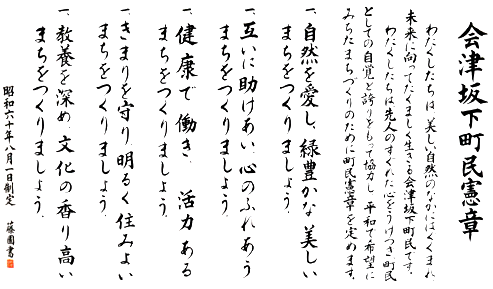 会津坂下町民憲章
わたくしたちは、美しい自然のなかにはぐくまれ、
未来に向ってたくましく生きる会津坂下町民です。
わたくしたちは先人のすぐれた心をうけつぎ町民
としての自覚と誇りをもって協力し、平和で希望に
みちたまちづくりのために町民憲章を定めます。
一、自然を愛し、緑豊かな美しい
まちをつくりましょう。
一、互いに助けあい、心のふれあう
まちをつくりましょう。
一、健康で働き、活力ある
まちをつくりましょう。
一、きまりを守り、明るく住みよい
まちをつくりましょう。
一、教養を深め、文化の香り高い
まちをつくりましょう。
昭和六十年八月一日制定
藤園書